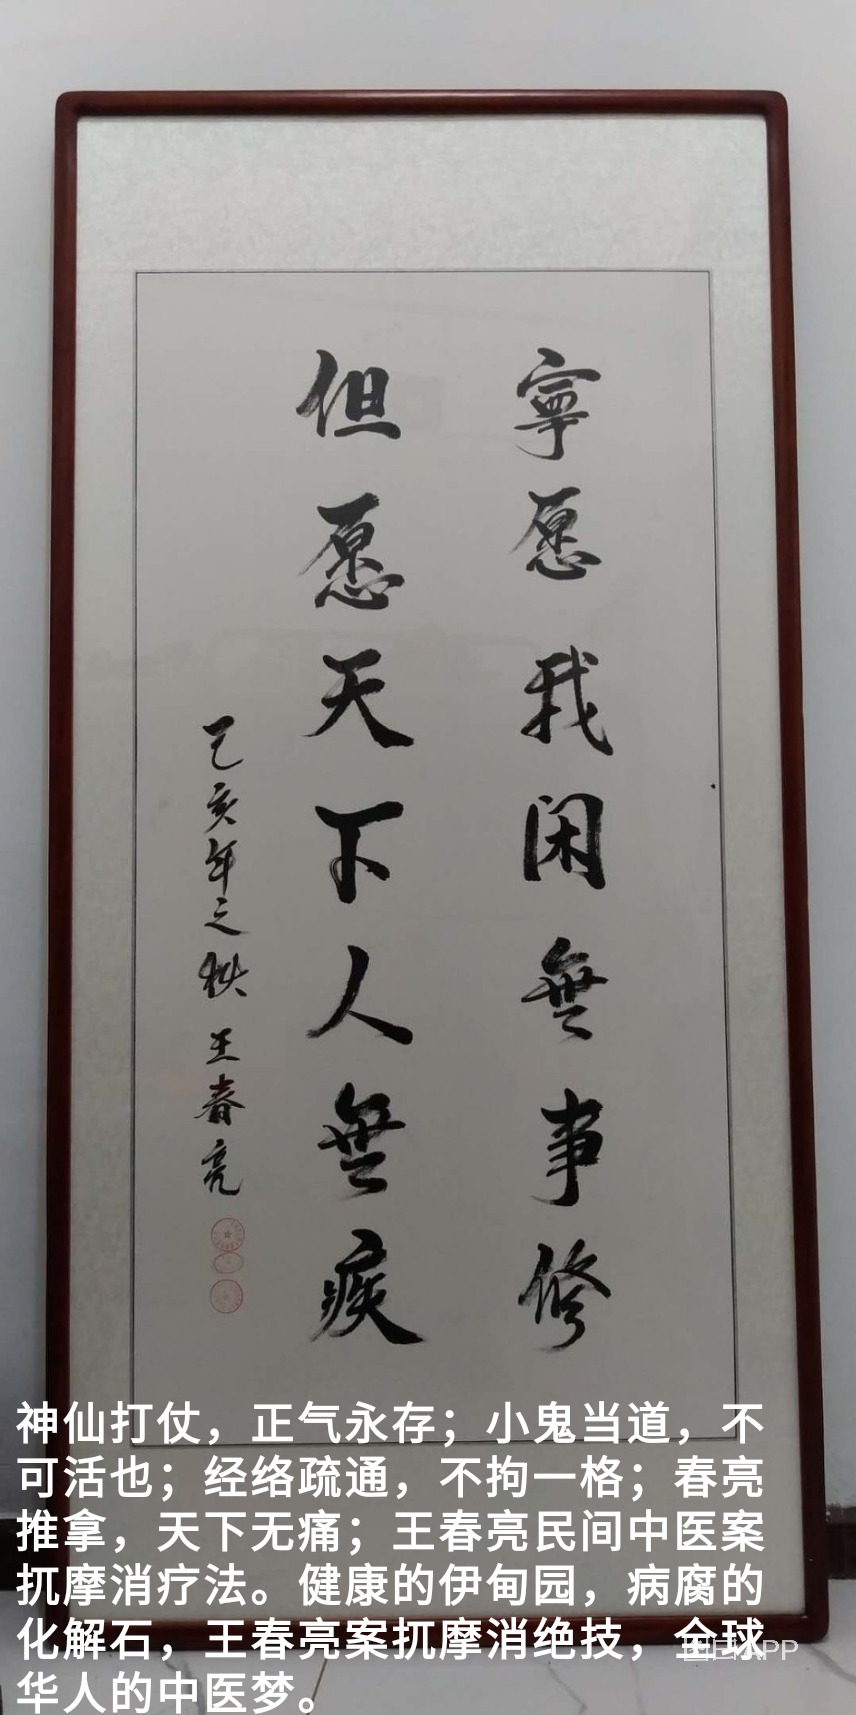 寧愿我闲無事修
但愿天下人無疾
己亥年之秋 王春亮
神仙打仗，正气永存；小鬼当道，不
可活也；经络疏通，不拘一格；春亮
推拿，天下无痛；王春亮民间中医案
扤摩消疗法。健康的伊甸园，病腐的
化解石，王春亮案扤摩消绝技，全球
华人的中医梦。